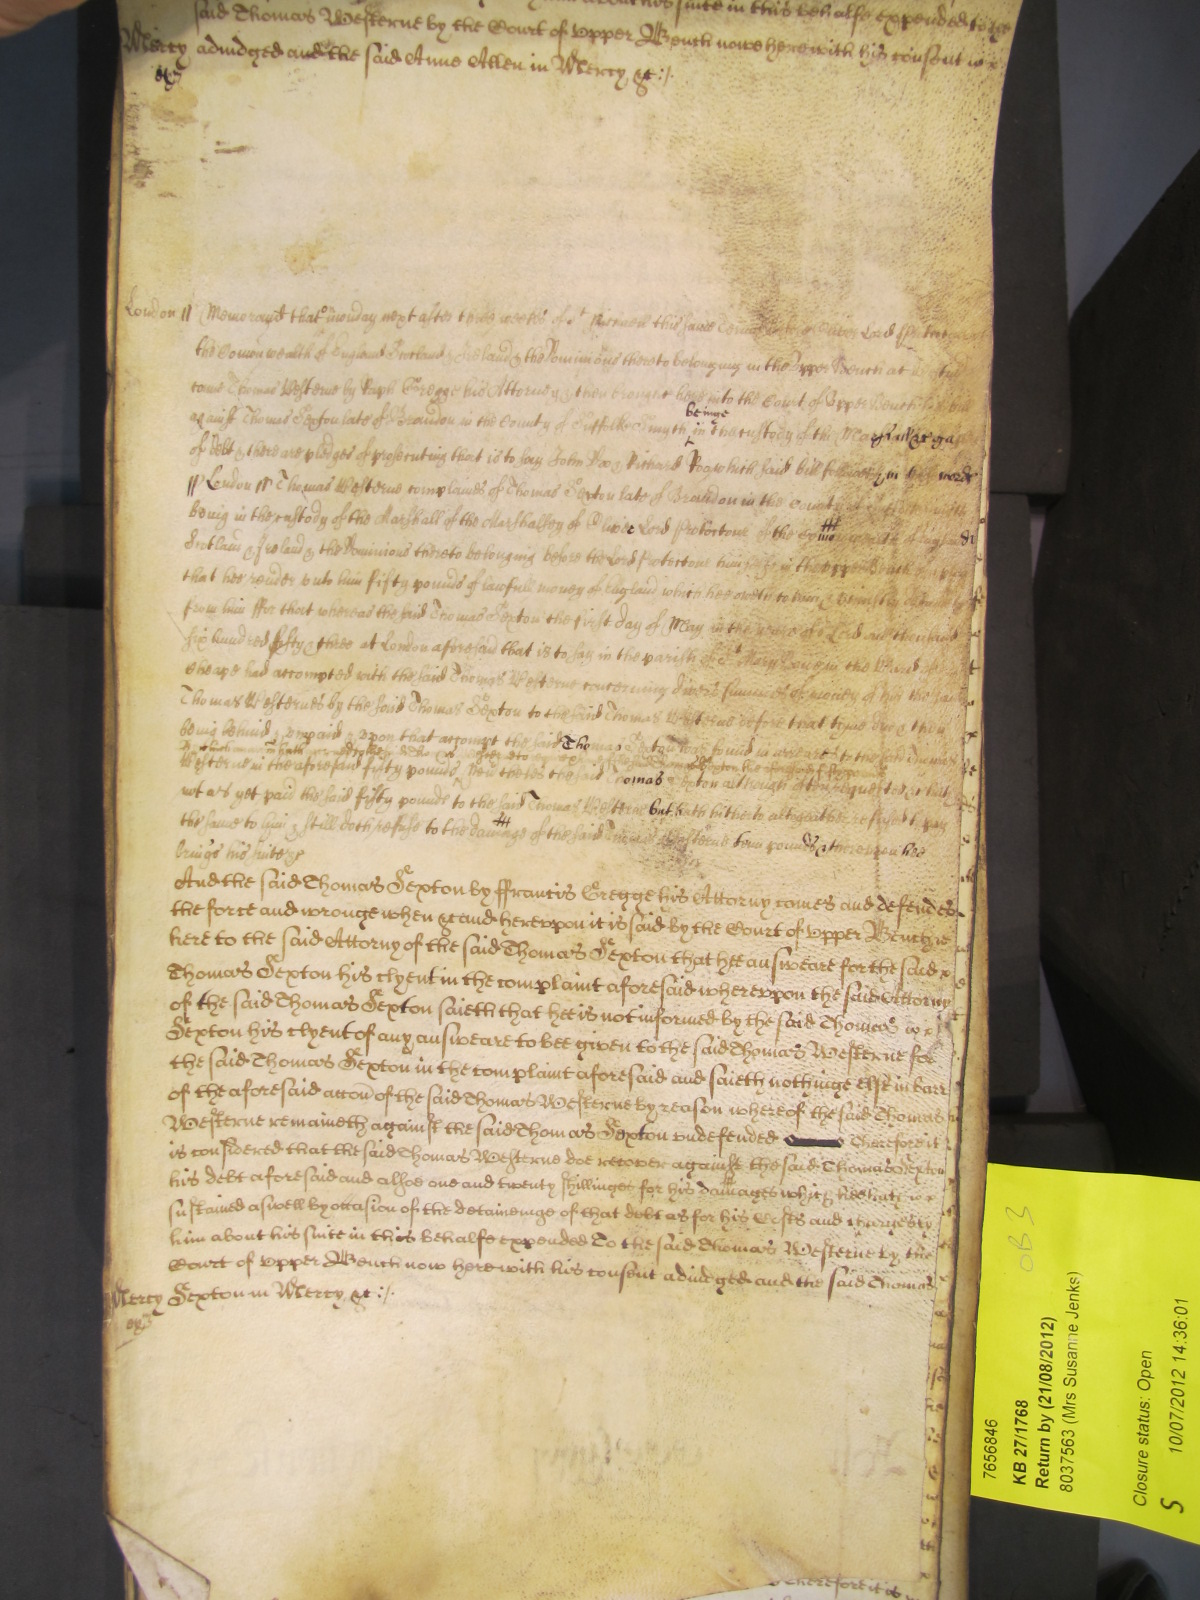 said Thomas Westerne by the Court of Upper Bench nowe here with his consent
Mercy adiudged and the said Anne Allen in Mercy &c :/.
London // Memorand that monday next after three weekes of St Michaell this same Terme before Oliver Lord Protector of
the Comonwealth of England Scotland & Ireland & the Dominions thereto belonging in the Upper Bench at
came Thomas Westerne by Gregge his Attorney & then brought here into the Court of Upper Bench his bill
against Thomas Sexton late of Brandon in the County of Suffolke beinge in the custody of the Marshall &c
of debt & there are pledges of prosecuting that is to say John Doo & Richard Roo which said bill followeth in these words
// London // Thomas Westerne complaines of Thomas Sexton late of Brandon in the County of
being in the custody of the Marshall of the Marshalsey of Oliver Lord Protectour of the Comonwealth of England
Scotland & Ireland & the Dominions thereto belonging before the Lord Protectour himselfe in the Upper Bench
that hee render unto him fifty pounds of lawfull money of England which hee oweth to him & uniustly
from him ffor that whereas the said Thomas Sexton the first day of May in the yeare of or Lord one thousand
six hundred fifty & three at London aforesaid that is to say in the parish of St Mary Bowe in the Ward of
Cheape had accompted with the said Thomas Westerne concerning divers summes of money of him the said
Thomas Westerne by the said Thomas Sexton to the said Thomas Westerne before that tyme due & then
being behind & unpaid & upon that accompt the said Thomas Sexton was found in arreare to the said Thomas
Westerne in the aforesaid fifty pounds Neverthelesse the said Thomas Sexton although often requested & hath
not as yet paid the said fifty pounds to the said Thomas Westerne but hath hitherto altogether refused to pay
the same to him & still doth refuse to the damage of the said Thomas Westerne tenn pounds & thereupon hee
brings his suite &c
And the said Thomas Sexton by ffrancis Gregge his Attorny comes and defendes
the force and wronge when &c and hereupon it is said by the Court of Upper Bench
here to the said Attorny of the said Thomas Sexton that hee answeare for the said
Thomas Sexton his clyent in the complaint aforesaid whereupon the said Attorny
of the said Thomas Sexton saieth that hee is not informed by the said Thomas
Sexton his clyent of any answeare to bee given to the said Thomas Westerne for
the said Thomas Sexton in the complaint aforesaid and saieth nothinge else in barr
of the aforesaid accon of the said Thomas Westerne by reason whereof the said Thomas
Westerne remaineth against the said Thomas Sexton undefended Therefore it
is considered that the said Thomas Westerne doe recover against the said Thomas Sexton
his debt aforesaid and alsoe one and twenty shillinges for his damages which hee hath
sustained aswell by occasion of the deteineinge of that debt as for his Costs and charges by
him about his suite in this behalfe expended To the said Thomas Westerne by the
Court of Upper Bench now here with his consent adiudged and the said Thomas
Mercy Sexton in Mercy &c :/.
Therefore it is
7656846
KB 27/1768
Return by (21/08/2012)
8037563 (Mrs Susanne Jenks)
Closure status: Open
S 10/07/2012 14:36:01
OB 3